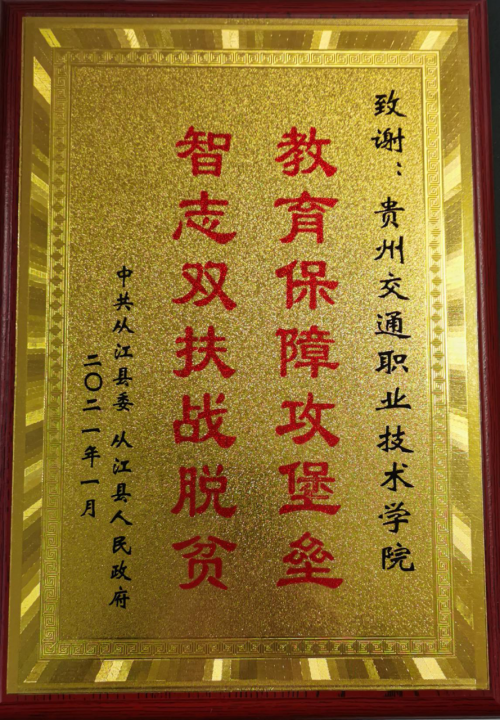 致谢：贵州交通职业技术学院
教育保障攻堡垒
智志双扶战脱贫
中共从江县委 从江县人民政府
二〇二一年一月